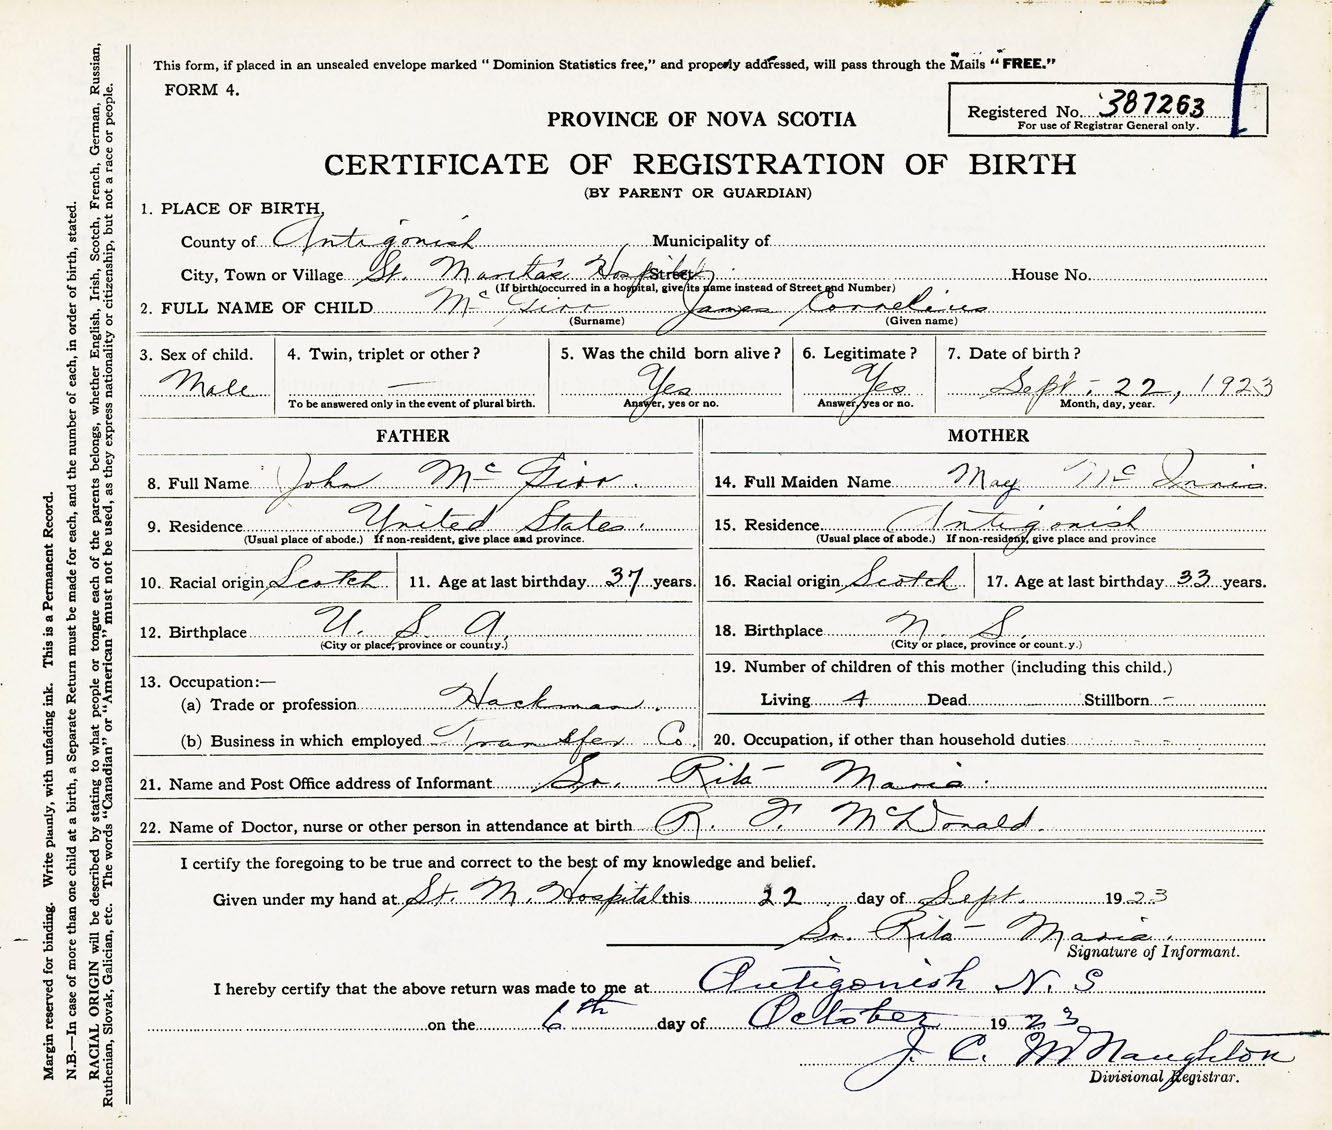 This form, if placed in an unsealed envelope marked "Dominion Statistics free," and properly addressed, will pass through the Mails "FREE."
FORM 4.
Registered No. 387263
For use of Registrar General only.
PROVINCE OF NOVA SCOTIA
CERTIFICATE OF REGISTRATION OF BIRTH
(BY PARENT OR GUARDIAN)
1. PLACE OF BIRTH,
County of Antigonish Municipality of
City, Town or Village St. Martha's Hospital Street House No.
(If birth occurred in a hospital, give its name instead of Street and Number)
2. FULL NAME OF CHILD McGirr James Cornelius
(Surname) (Given name)
3. Sex of child. 4. Twin, triplet or other? 5. Was the child born alive? 6. Legitimate? 7. Date of birth?
Male — Yes Yes Sept. 22, 1923
To be answered only in the event of plural birth. Answer, yes or no. Answer, yes or no. Month, day, year.
FATHER MOTHER
8. Full Name John McGirr. 14. Full Maiden Name May McInnis
9. Residence United States. 15. Residence Antigonish
(Usual place of abode.) If non-resident, give place and province. (Usual place of abode.) If non-resident, give place and province
10. Racial origin Scotch 11. Age at last birthday 37 years. 16. Racial origin Scotch 17. Age at last birthday 33 years.
12. Birthplace U. S. A. 18. Birthplace N. S.
(City or place, province or country.) (City or place, province or country.)
19. Number of children of this mother (including this child.)
13. Occupation:—
(a) Trade or profession Hackman. Living 4 Dead Stillborn -
(b) Business in which employed Transfer Co. 20. Occupation, if other than household duties - - -
21. Name and Post Office address of Informant Sr. Rita Maria.
22. Name of Doctor, nurse or other person in attendance at birth R. F. McDonald.
I certify the foregoing to be true and correct to the best of my knowledge and belief.
Given under my hand at St. M. Hospital this 22 day of Sept. 1923
Sr. Rita Maria.
Signature of Informant.
I hereby certify that the above return was made to me at Antigonish N. S
on the 6th day of October 1923
J. C. McNaughton
Divisional Registrar.
Margin reserved for binding. Write plainly, with unfading ink. This is a Permanent Record.
N.B.—In case of more than one child at a birth, a Separate Return must be made for each, and the number of each, in order of birth, stated.
RACIAL ORIGIN will be described by stating to what people or tongue each of the parents belongs, whether English, Irish, Scotch, French, German, Russian,
Ruthenian, Slovak, Galician, etc. The words "Canadian" or "American" must not be used, as they express nationality or citizenship, but not a race or people.